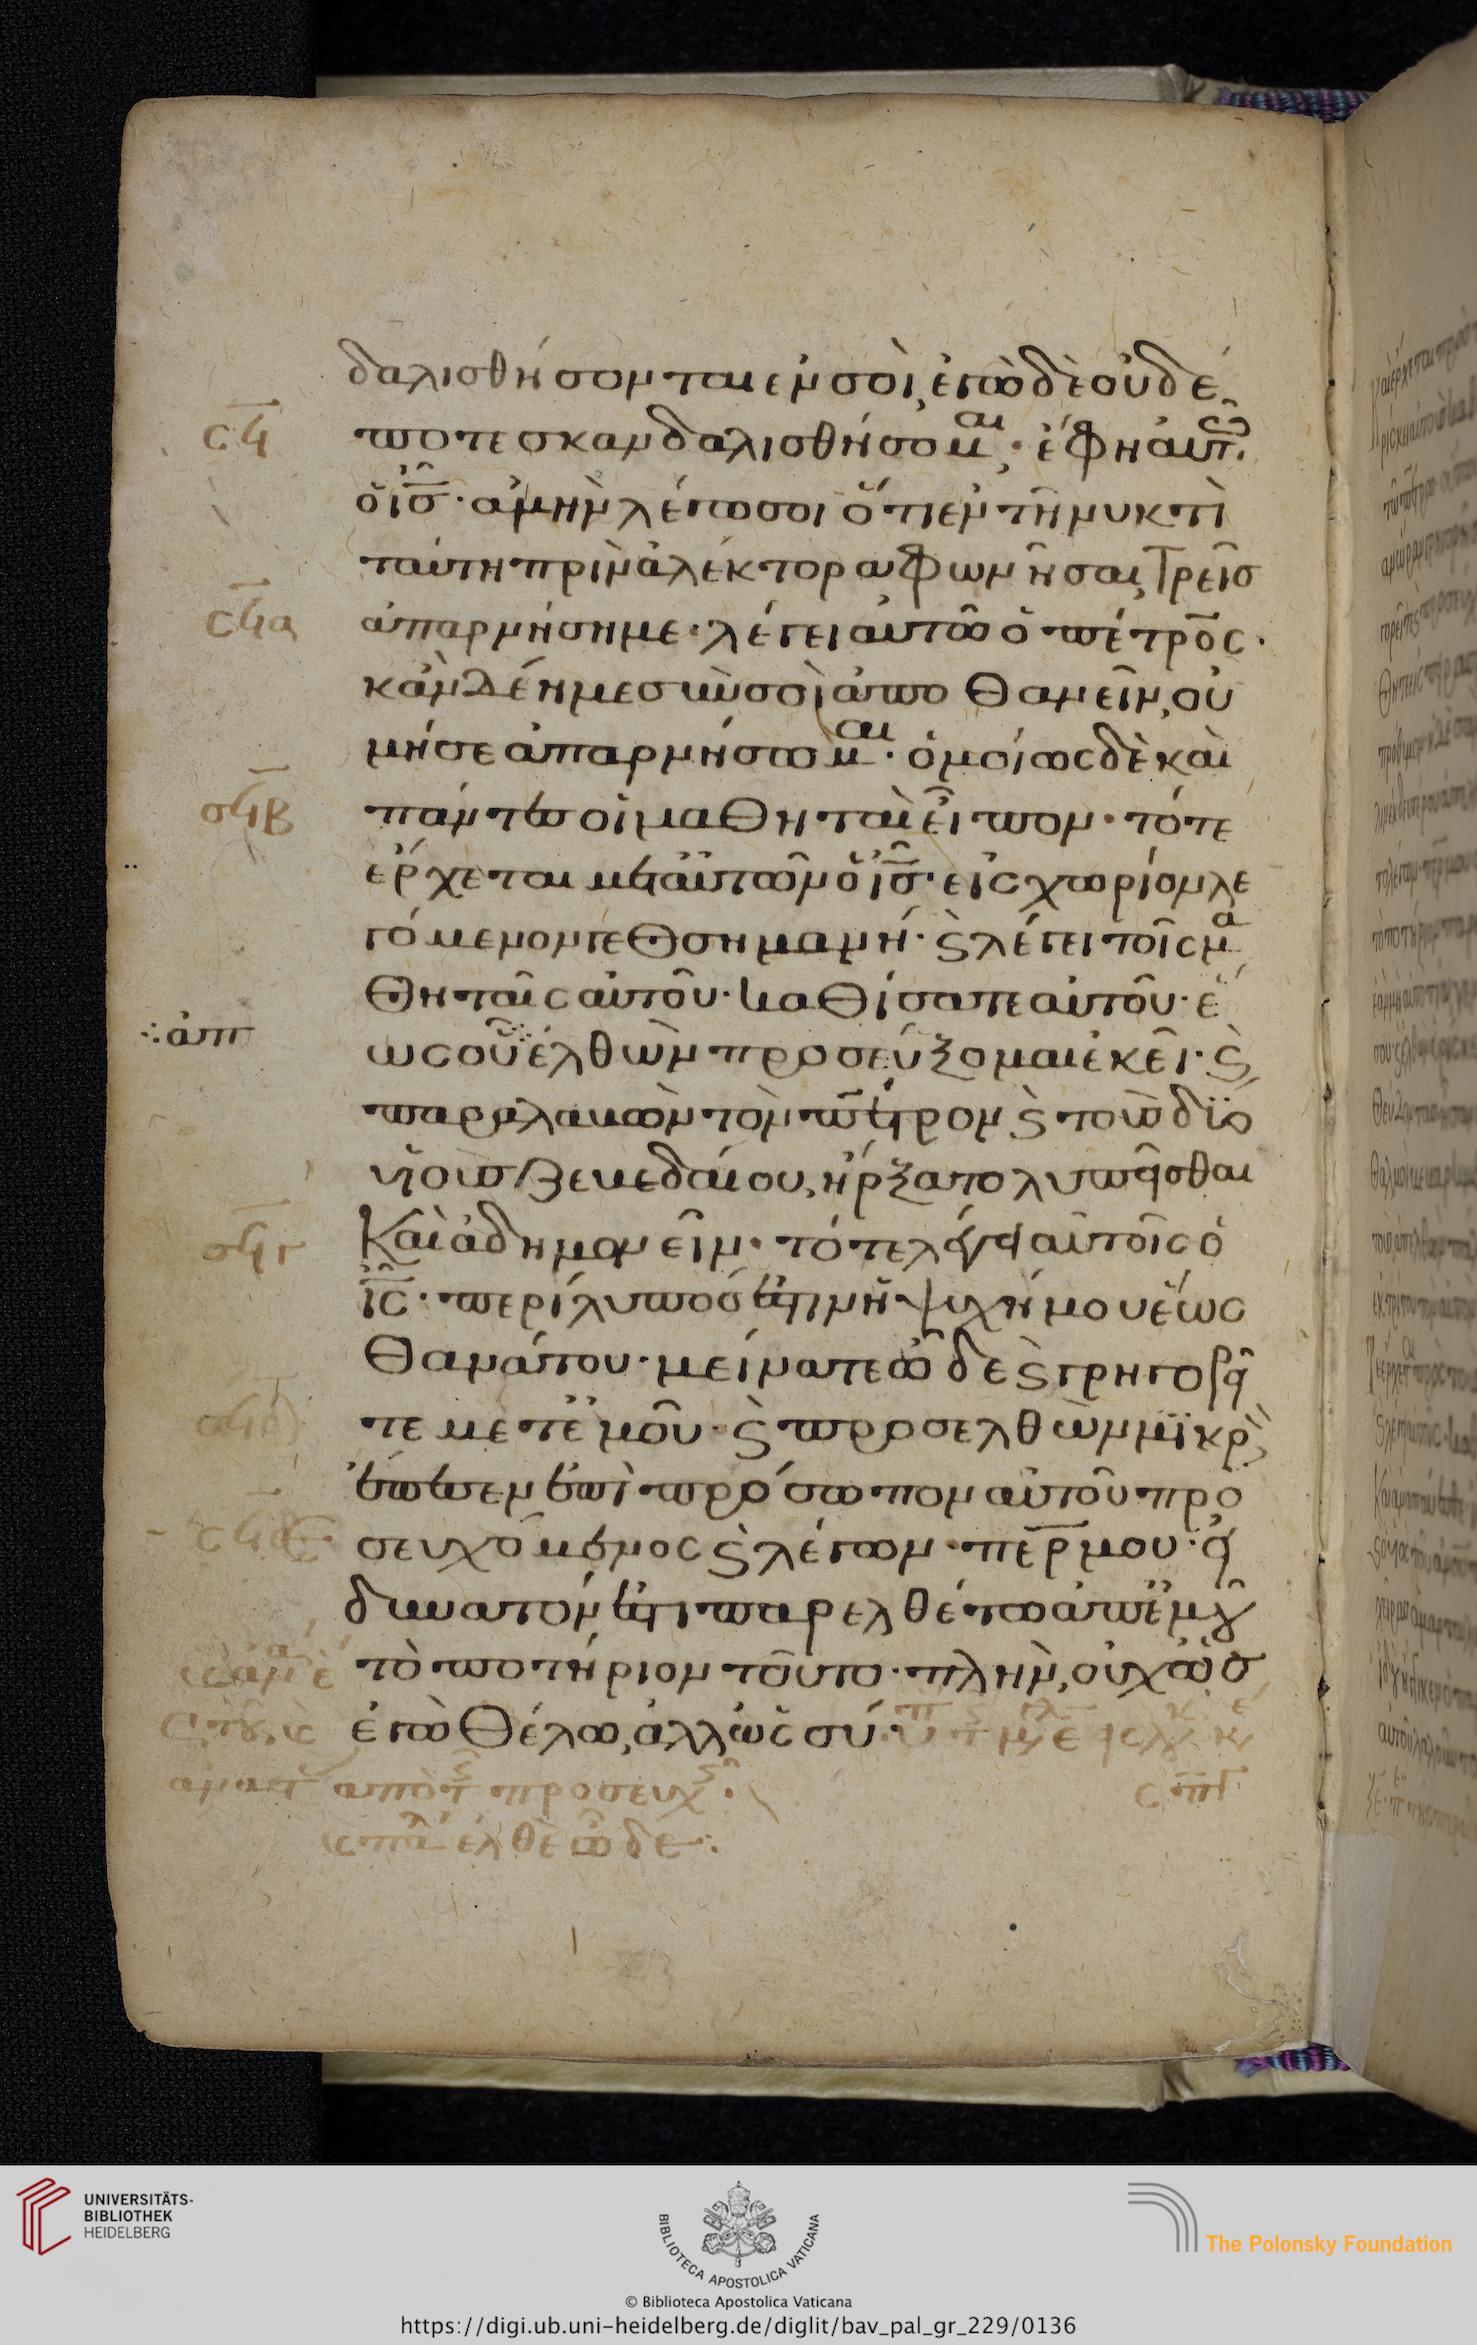 δαλισθήσονται ἐν σοὶ, ἐγὼ δὲ οὐδέ
ποτε σκανδαλισθήσομαι· ἔφη αὐτῶ
ὁ ις· ἀμὴν λέγω σοι ὅτι ἐν τῆ νυκτὶ
ταύτη πρὶν ἀλέκτορα φωνῆσαι, τρεῖς
ἀπαρνήση με· λέγει αὐτῶ ὁ πέτρος·
κἂν δέη με σὺν σοὶ ἀποθανεῖν, οὐ
μή σε ἀπαρνήσωμαι· ὁμοίως δὲ καὶ
πάντες οἱ μαθηταὶ εἶπον· τότε
ἔρχεται μετ αὐτῶν ὁ ις· εἰς χωρίον λε
γόμενον γεθσημανή· ϗ λέγει τοῖς μα
θηταῖς αὐτοῦ· καθίσατε αὐτοῦ· ἕ
ως οὗ ἐλθὼν προσεύξομαι ἐκεῖ· ϗ
παραλαβὼν τὸν πέτρον ϗ τοὺς δϊο
υἱοὺς ζεβεδαίου, ἤρξατο λυπεῖσθαι
Καὶ ἀδημονεῖν· τότε λέγει αὐτοῖς ὁ
ις· περίλυπός ἐστιν ἡ ψυχή μου ἕως
θανάτου· μείνατε ὧδε ϗ γρηγορεῖ
τε μετ ἐμοῦ· ϗ προσελθὼν μϊκρὸν
ἔπεσεν ἐπὶ πρόσωπον αὐτοῦ προ
σευχόμενος ϗ λέγων· περ μου· εἰ
δυνατόν ἐστι παρελθέτω ἀπ ἐμοῦ
τὸ ποτήριον τοῦτο· πλὴν, οὐχ ὡς
ἐγὼ θέλω, ἀλλ ὡς σύ·
ἀπὸ τ προσευχ
ἐλθὲ ὧδε:
σϟ
σϟα
σϟβ
∴ἀπ
σϟγ
UNIVERSITÄTS-
BIBLIOTHEK
HEIDELBERG
BIBLIOTECA APOSTOLICA VATICANA
The Polonsky Foundation
© Biblioteca Apostolica Vaticana
https://digi.ub.uni-heidelberg.de/diglit/bav_pal_gr_229/0136